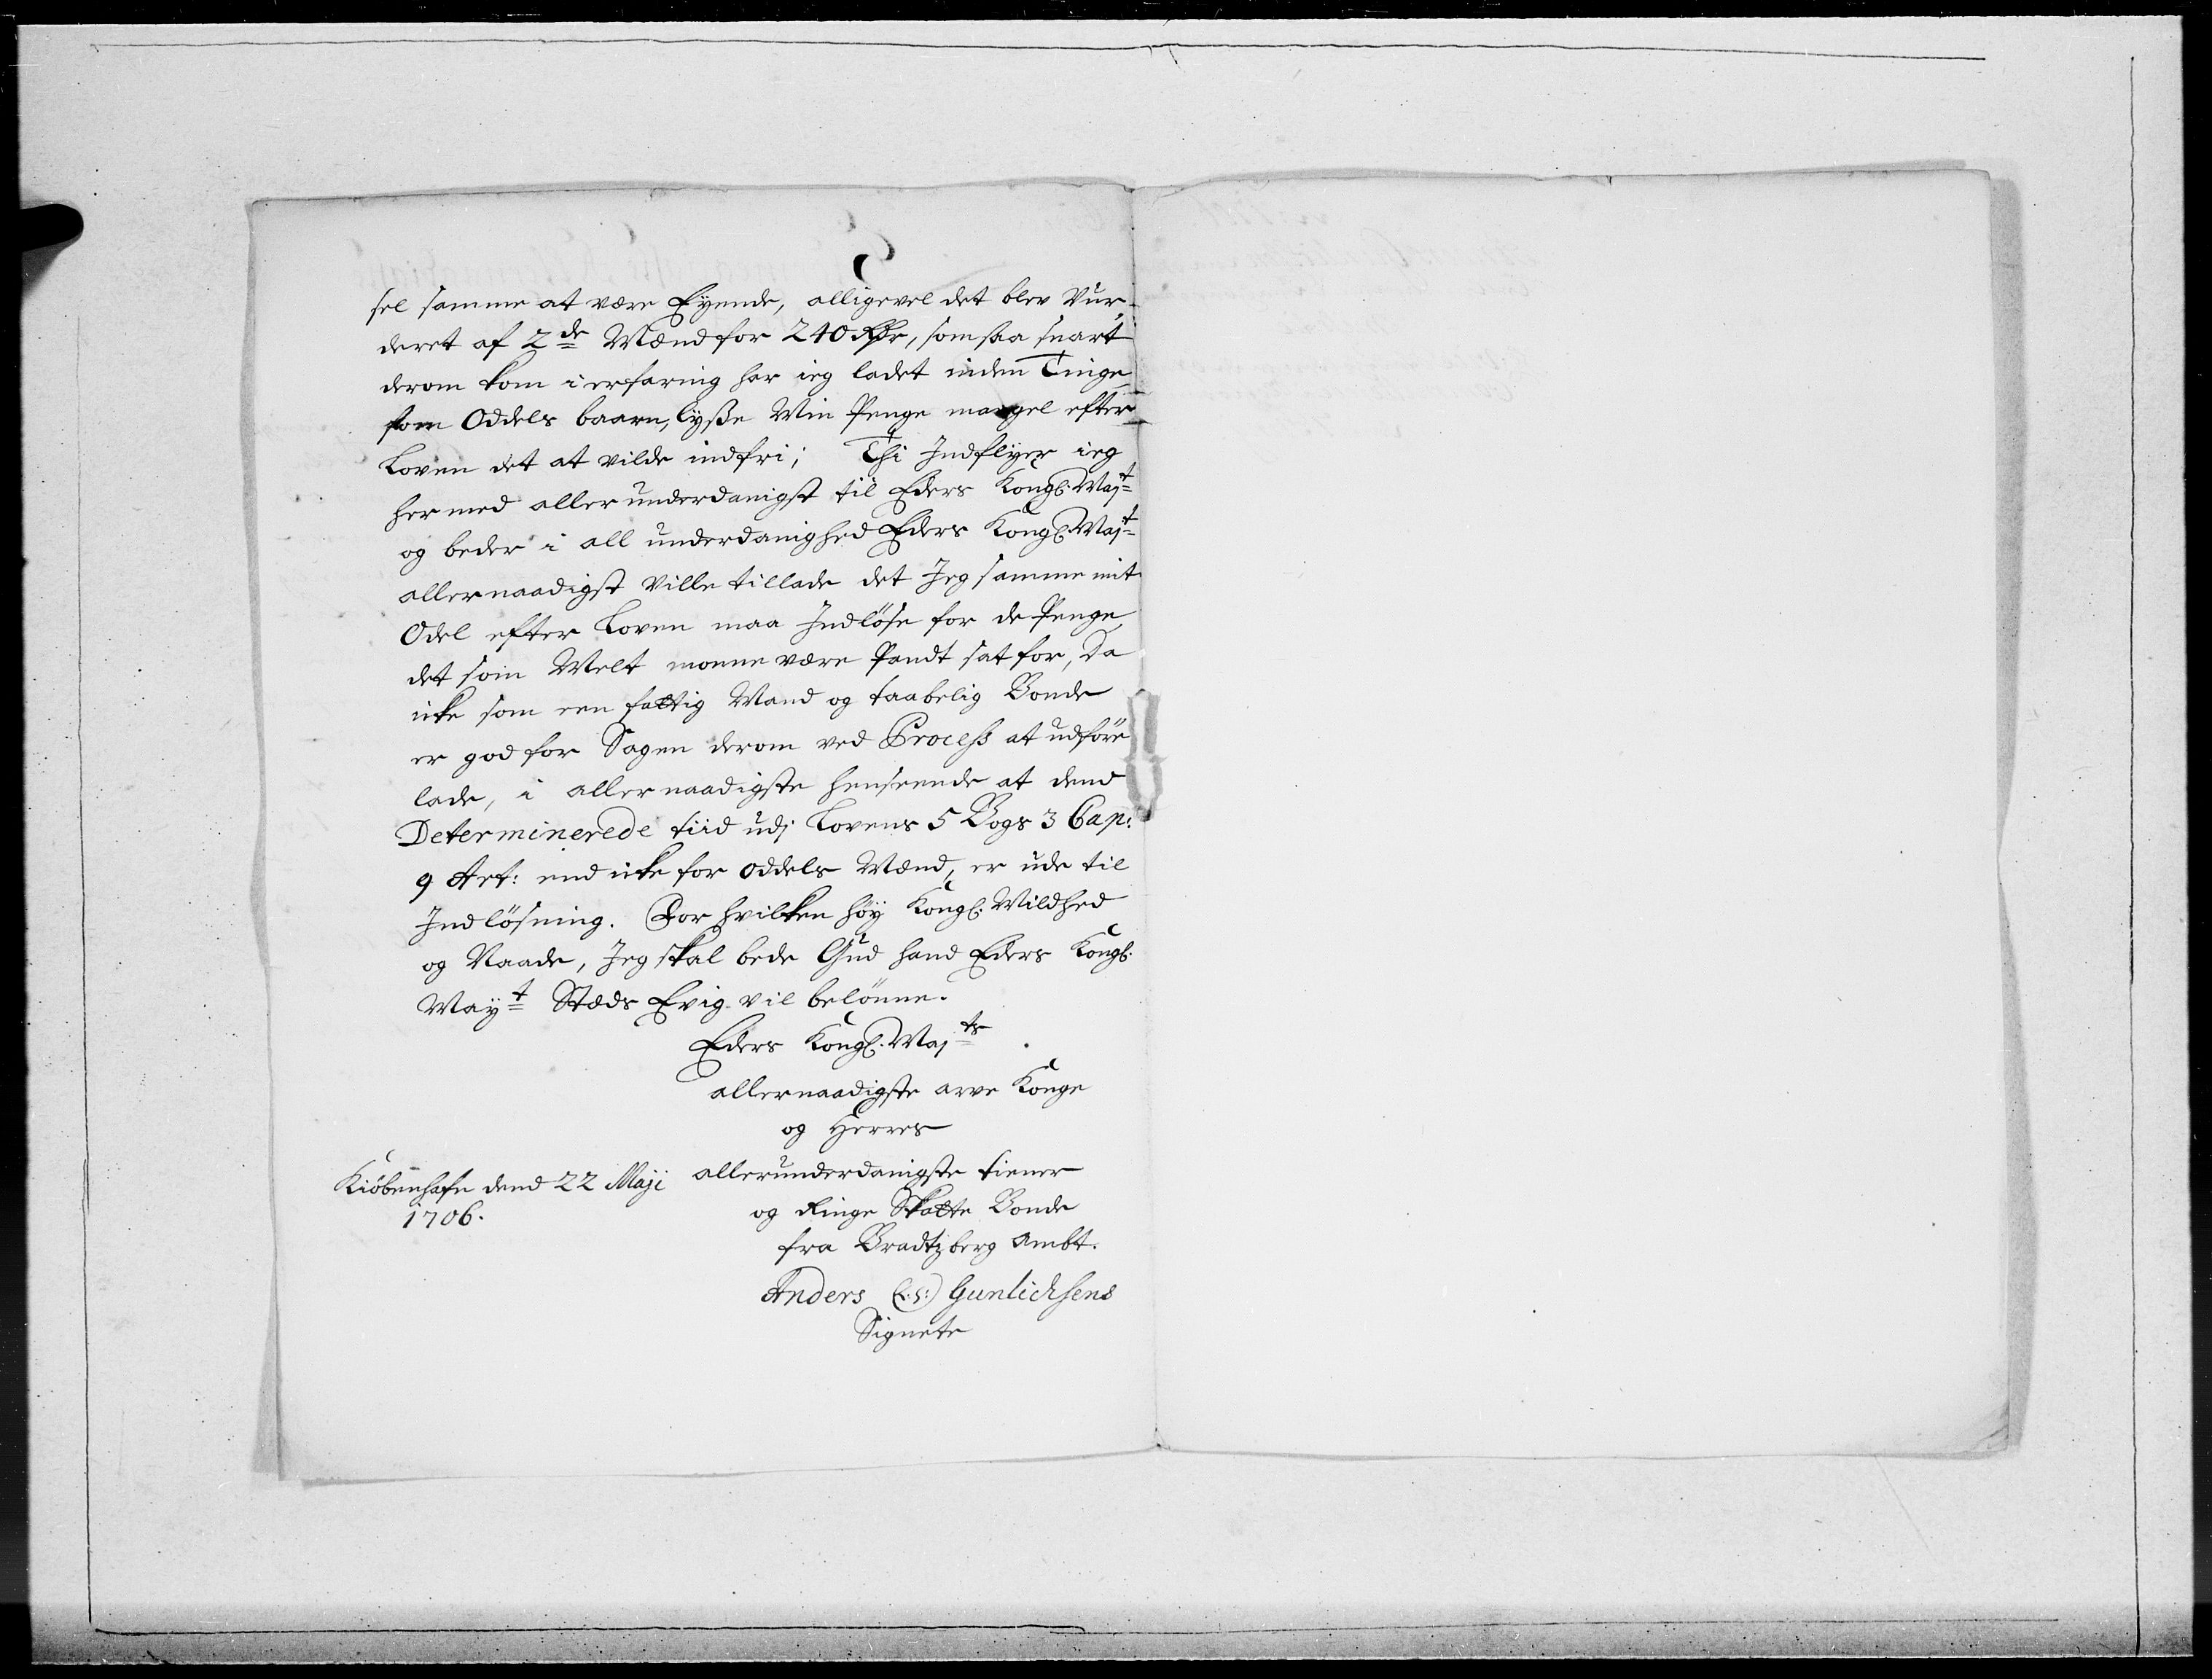 sel samme at være Eyende, alligevel det blev Vur¬
deret af 2de Mænd for 240 Rdr, som saa snart
derom kom i erfaring har ieg ladet inden Tinge,
som Oddels baarn, lyße Min Penge mangel efter
Loven det at vilde indfri; Thi Indflyer ieg
hermed allerunderdanigst til Eders Kongl. Majt
og beder i all underdanighed Eders Kongl. Majt
allernaadigst Ville tillade det Jeg samme mit
Odel efter Loven maa Indløse for de Penge,
det som Melt monne være Pandt sat for, da
icke som een fattig Mand og taabelig Bonde
er god for Sagen derom ved Process at udføre
lade, i allernaadigste henseende at dend
Determinerede tiid udj Lovens 5 Bogs 3 Cap:
9 Art: end icke for Oddels Mænd, er ude til
Indløsning. For hvilken høy Kongl. Mildhed
og Naade, Jeg skal bede Gud hand Eders Kongl.
Mayt Stæds Evig vil belønne.
Eders Kongl. Majts
allernaadigste arve Konge
og Herres
allerunderdanigste tiener
Kiøbenhafn dend 22 Maji
1706.
og Ringe Skatte Bonde
fra Bradtzberg Ambt.
Anders (L:S:) Gunlichsens
Signete